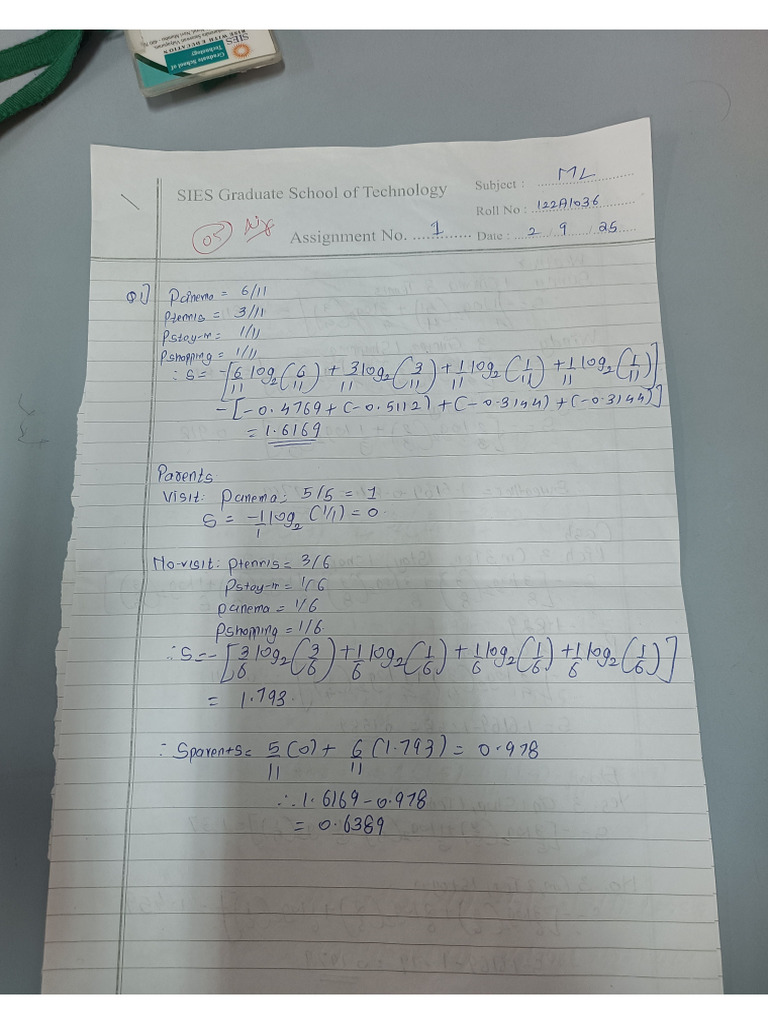 SIES
Graduate School of
Technology
RISE WITH EDUCATION
SIES Graduate School of Technology
Subject : ML
Roll No : 122A1036
Assignment No. 1
Date : 2 / 9 / 25
05
Q1] Pcinema = 6/11
Ptennis = 3/11
Pstay-in = 1/11
Pshopping = 1/11
∴ S = -[6/11 log2(6/11) + 3/11 log2(3/11) + 1/11 log2(1/11) + 1/11 log2(1/11)]
-[-0.4769 + (-0.5112) + (-0.3144) + (-0.3144)]
= 1.6169
Parents
Visit: Pcinema: 5/5 = 1
S = -1/1 log2 (1/1) = 0.
No-visit: Ptennis = 3/6
Pstay-in = 1/6
Pcinema = 1/6
Pshopping = 1/6.
∴ S = -[3/6 log2(3/6) + 1/6 log2(1/6) + 1/6 log2(1/6) + 1/6 log2(1/6)]
= 1.793.
∴ Sparents = 5/11 (0) + 6/11 (1.793) = 0.978
∴ 1.6169 - 0.978
= 0.6389